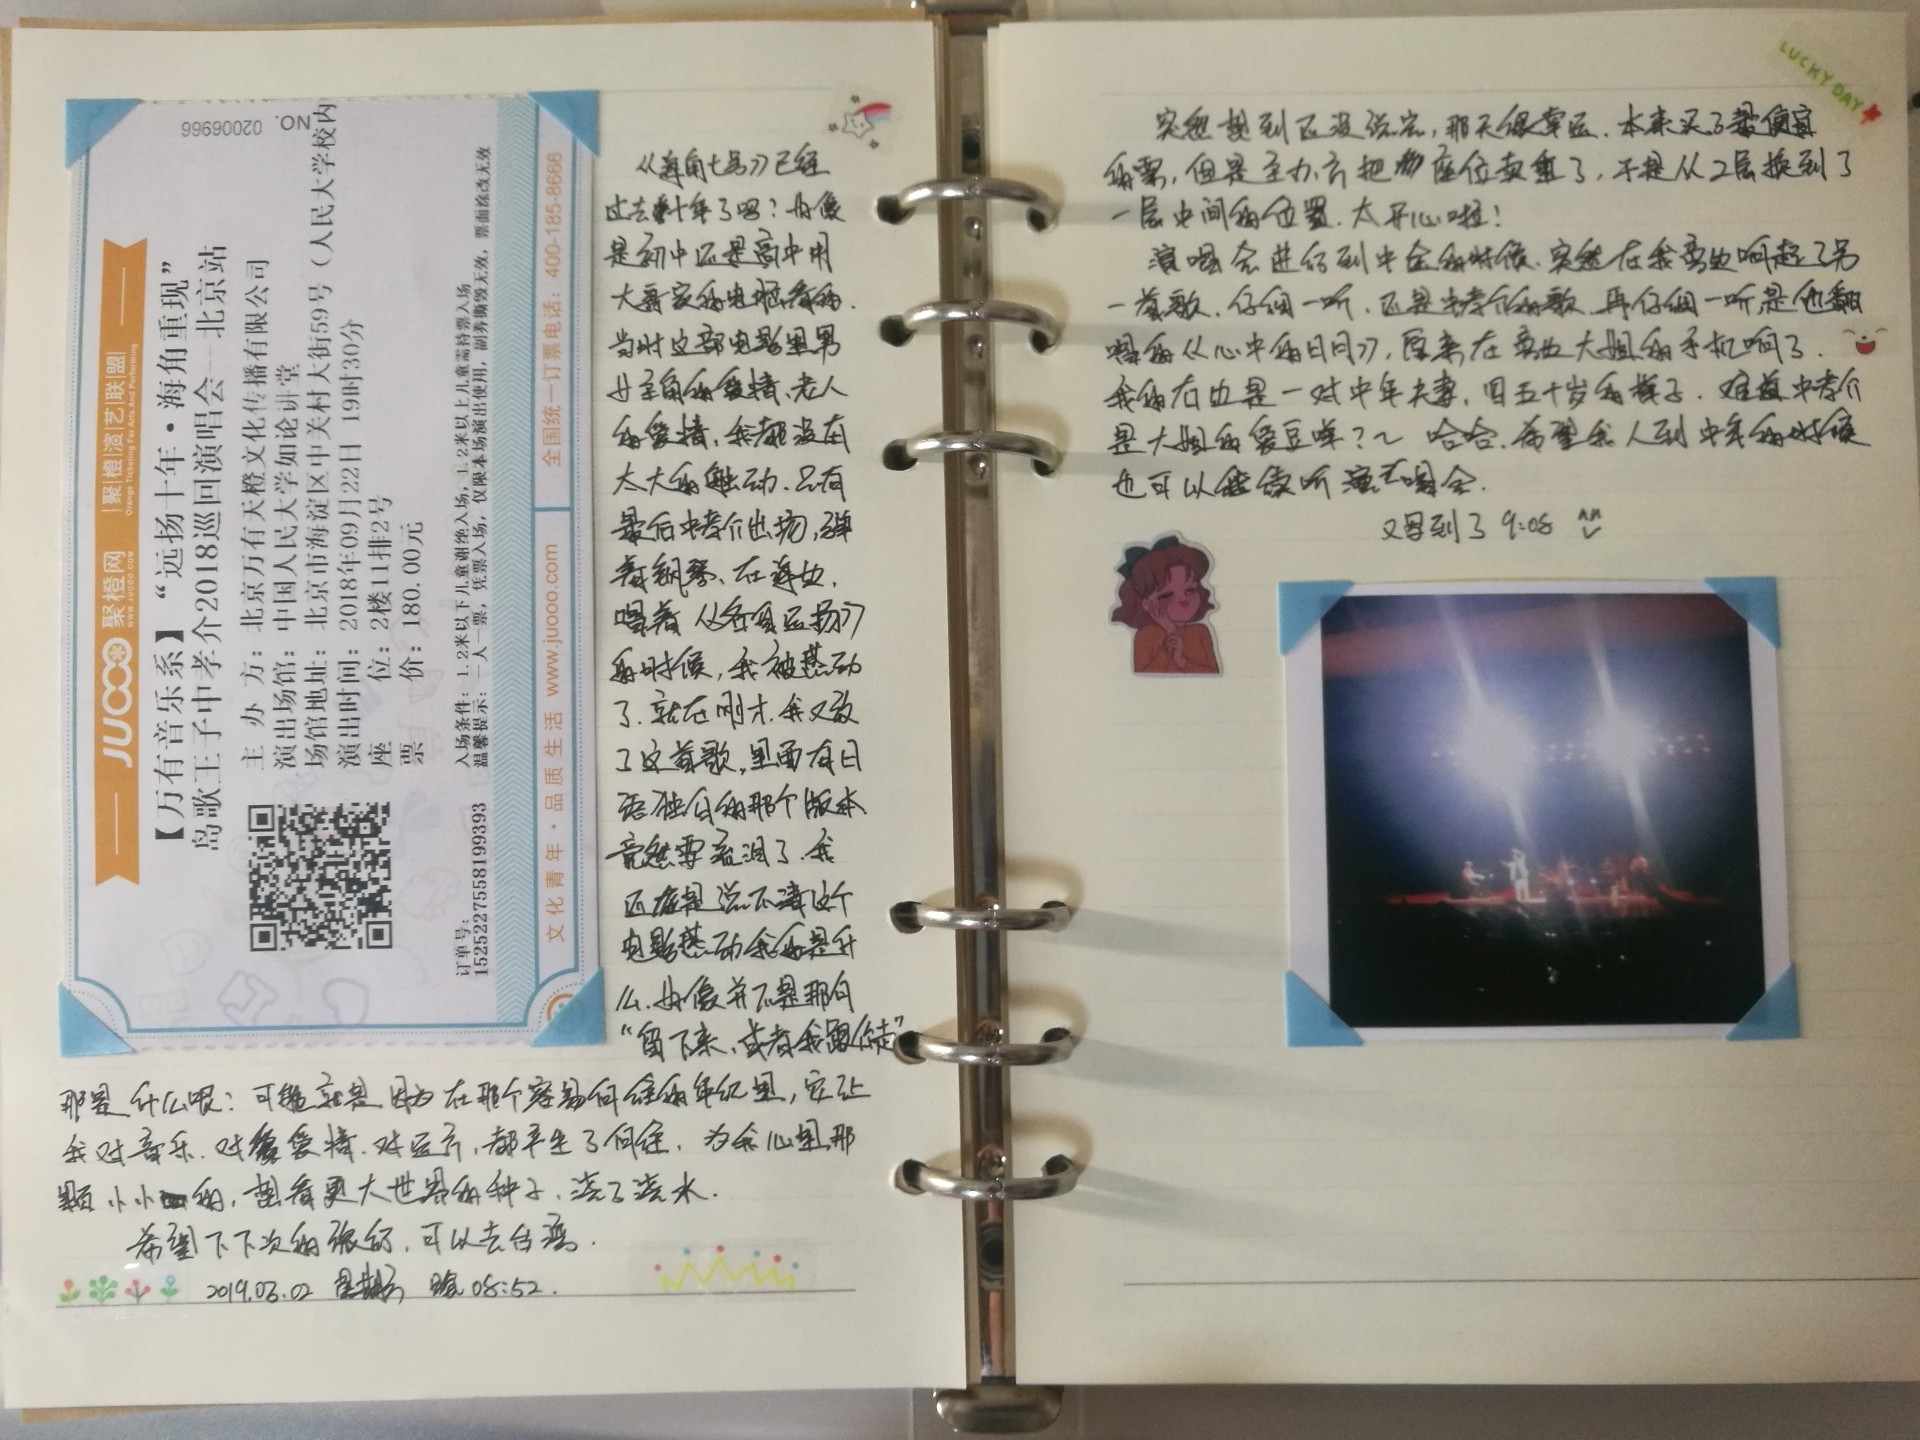 NO. 02006966
JUCOO 聚橙网 |聚|橙|演|艺|联|盟|
WWW.JUOOO.COM Orange Ticketing For Arts And Performing
【万有音乐系】“远扬十年·海角重现”
岛歌王子中孝介2018巡回演唱会—北京站
主 办 方：北京万有天橙文化传播有限公司
演出场馆：中国人民大学如论讲堂
场馆地址：北京市海淀区中关村大街59号（人民大学校内
演出时间：2018年09月22日 19时30分
座 位：2楼11排2号
票 价：180.00元
入场条件：1.2米以下儿童谢绝入场，1.2米以上儿童需持票入场
温馨提示：一人一票，凭票入场，仅限本场演出使用，副券撕毁无效，票面涂改无效
订单号：
1525227558199393
文化青年·品质生活 www.juooo.com 全国统一订票电话：400-185-8666
《海角七号》已经
过去十年了吗？好像
是初中还是高中用
大哥家的电脑看的.
当时这部电影里男
女主角的爱情、老人
的爱情，我都没有
太大的触动.只有
最后中孝介出场，弹
着钢琴、在海边，
唱着《各自远扬》
的时候，我被感动
了.就在刚才.我又放
了这首歌，里面有日
语独白的那个版本.
竟然要流泪了.我
还是说不清这个
电影感动我的是什
么.好像并不是那句
“留下来，或者我跟你走”
那是什么呢：可能就是因为在那个容易向往的年纪里，它让
我对音乐.对爱情.对远方，都产生了向往，为我心里那
颗小小的，想看更大世界的种子，浇了浇水.
希望下下次的旅行，可以去台湾.
2019.03.02 星期六 晚08:52.
LUCKY DAY
突然想到还没说完，那天很幸运.本来买了最便宜
的票，但是主办方把座位卖重了，于是从2层换到了
一层中间的位置.太开心啦！
演唱会进行到中途的时候.突然在我旁边响起了另
一首歌.仔细一听，还是中孝介的歌.再仔细一听是他翻
唱的《心中的日月》，原来在旁边大姐的手机响了.
我的右边是一对中年夫妻，四五十岁的样子.难道中孝介
是大姐的爱豆嘛？~ 哈哈.希望我人到中年的时候
也可以继续听演唱会.
又写到了 9:08